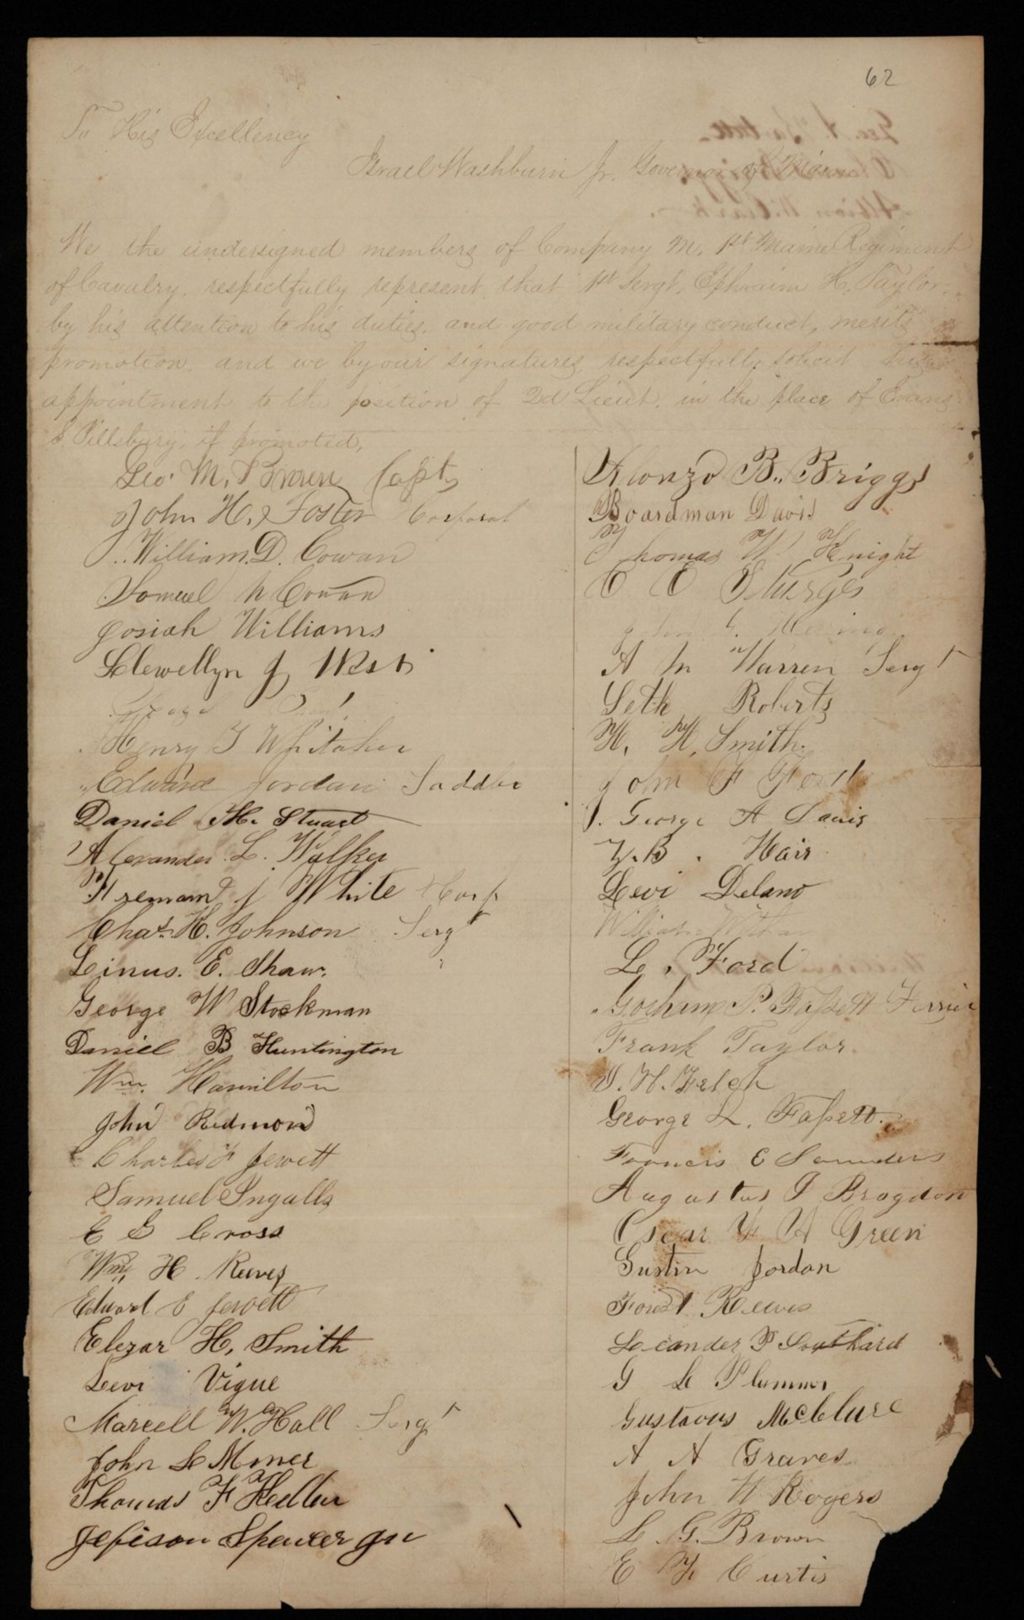 62
To His Excellency
Israel Washburn Jr. Governor of
We the undersigned members of Company M. 1st Maine Regiment
of Cavalry, respectfully represent, that 1st Sergt. Ephraim H. Taylor,
by his attention to his duties, and good military conduct, merits
promotion, and we by our signatures respectfully solicit his
appointment to the position of 2d Lieut. in the place of Evans
S Pillsbury, if promoted.
Geo. M. Brown Capt
John H. Foster Corporal
William. D. Cowan
Samuel W Cowan
Josiah Williams
Llewellyn J West
Henry T Whitaker
Edward Jordan Saddler
Daniel H. Stuart
Alexander L. Walker
J White Corp
Chas. H. Johnson Sergt
Linus. E. Shaw.
George W Stockman
Daniel B Huntington
Wm. Hamilton
John Redmond
Charles F Jewett
Samuel Ingalls
E G Cross
Wm. H Reeves
Edward E Jewett
Elezar H. Smith
Levi Vigue
Marcell W. Hall Sergt
John L Miner
Thomas F
Jefison Spencer Jn
Alonzo B. Briggs
Boardman Davis
Thomas W Knight
O O Sturges
A M Warren Sergt
Seth Roberts
H. H. Smith.
John F Ford
George A Davis
Z. B. Hair
Levi Delano
William
L. Ford
P. Fassett Ferrier
Frank Taylor.
George L. Fassett.
Francis E Saunders
Augustus T Bragdon
Oscar F A Green
Gustin Jordan
Forest Reeves
Leander P Southard
G L Plummer
Gustavus McClure
A A Graves
John W Rogers
L. G. Brown
E F Curtis